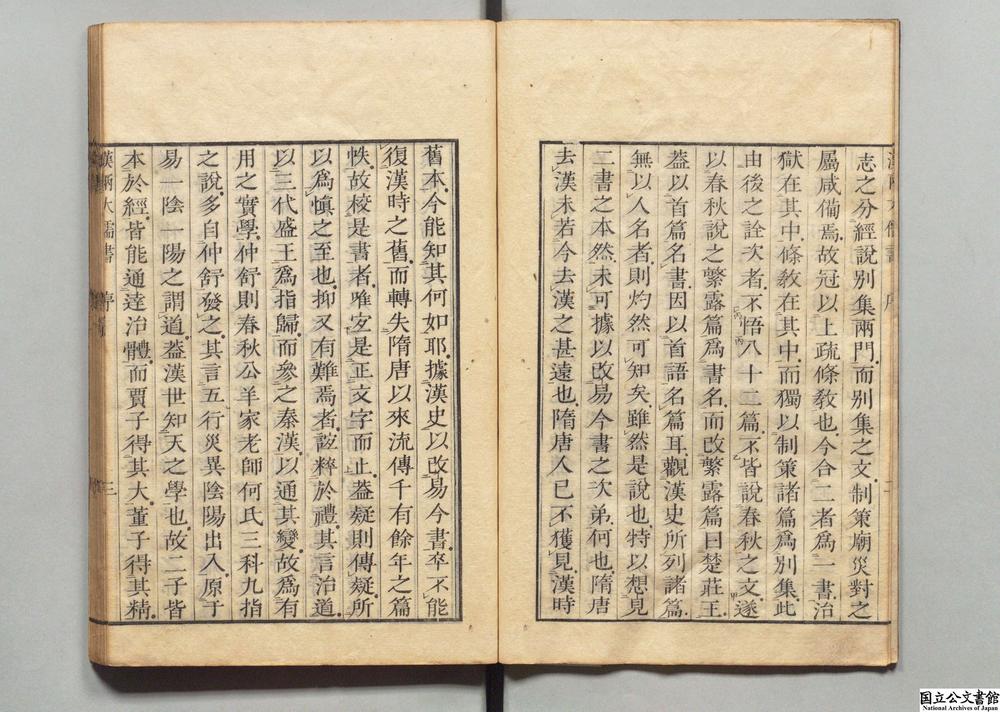 志之分經說別集兩門而別集之文制策廟災對之
屬咸備焉故冠以上疏條敎也今合二者爲一書治
獄在其中條敎在其中而獨以制策諸篇爲別集此
由後之詮次者不悟八十二篇不皆說春秋之文遂
以春秋說之繁露篇爲書名而改繁露篇曰楚莊王
蓋以首篇名書因以首語名篇耳觀漢史所列諸篇
無以人名者則灼然可知矣雖然是說也特以想見
二書之本然未可據以改易今書之次弟何也隋唐
去漢未若今去漢之甚遠也隋唐人已不獲見漢時
舊本今能知其何如耶據漢史以改易今書卒不能
復漢時之舊而轉失隋唐以來流傳千有餘年之篇
帙故校是書者唯定是正文字而止蓋疑則傳疑所
以爲愼之至也抑又有難焉者該粹於禮其言治道
以三代盛王爲指歸而參之秦漢以通其變故爲有
用之實學仲舒則春秋公羊家老師何氏三科九指
之說多自仲舒發之其言五行災異陰陽出入原于
易一陰一陽之謂道蓋漢世知天之學也故二子皆
本於經皆能通達治體而賈子得其大董子得其精
漢兩大儒書 序 三
国立公文書館
National Archives of Japan